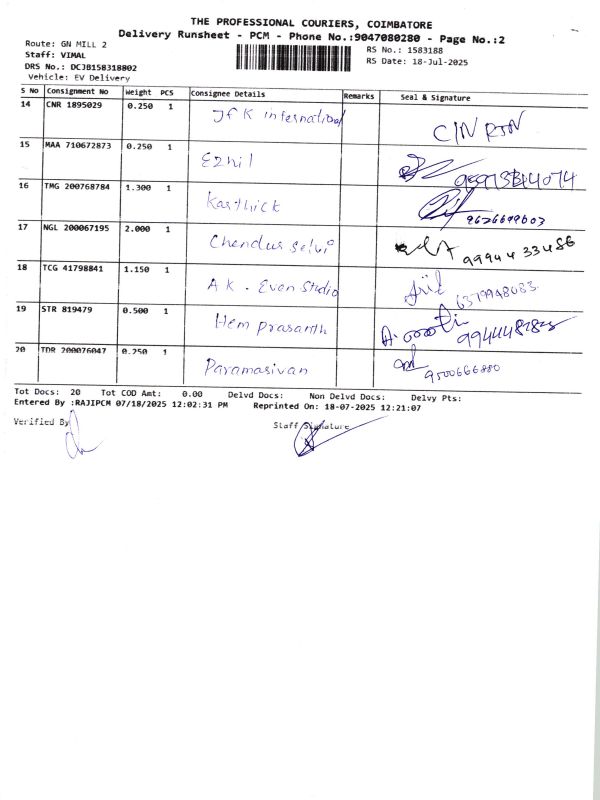 THE PROFESSIONAL COURIERS, COIMBATORE
Delivery Runsheet - PCM - Phone No.:9047080280 - Page No.:2
Route: GN MILL 2
RS No.: 1583188
Staff: VIMAL
RS Date: 18-Jul-2025
DRS No.: DCJB158318802
Vehicle: EV Delivery
S No Consignment No Weight PCS Consignee Details Remarks Seal & Signature
14 CNR 1895029 0.250 1 JFK international
15 MAA 710672873 0.250 1 Ezhil
16 TMG 200768784 1.300 1 Karthick 9626699603
17 NGL 200067195 2.000 1 Chendur Selvi 99944 33486
18 TCG 41798841 1.150 1 AK. Even Studio
19 STR 819479 0.500 1 Hem prasanth
20 TDR 200076047 0.250 1 Paramasivan 9500666880
Tot Docs: 20 Tot COD Amt: 0.00 Delvd Docs: Non Delvd Docs: Delvy Pts:
Entered By :RAJIPCM 07/18/2025 12:02:31 PM Reprinted On: 18-07-2025 12:21:07
Verified By Staff Signature